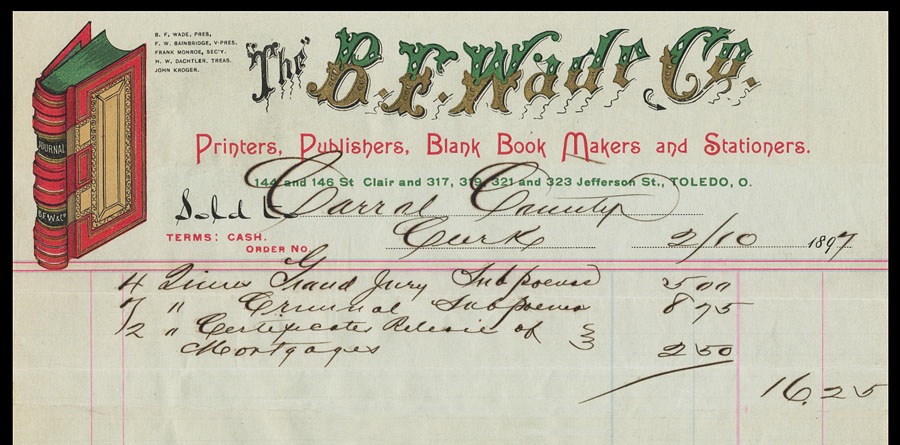 B. F. WADE, PRES,
F. W. BAINBRIDGE, V-PRES.
FRANK MONROE, SEC'Y.
H. W. DACHTLER, TREAS.
JOHN KROGER.
"The" B. F. Wade Co.
Printers, Publishers, Blank Book Makers and Stationers.
144 and 146 St Clair and 317, 319, 321 and 323 Jefferson St., TOLEDO, O.
JOURNAL
B.F.W.&Co
Sold to Carrol County
TERMS: CASH.
ORDER NO. Clerk 2/10 1897
4 Quires Grand Jury Subpoenas 5 00
7 " Criminal Subpoena 8 75
2 " Certificates Release of
Mortgages 2 50
16.25